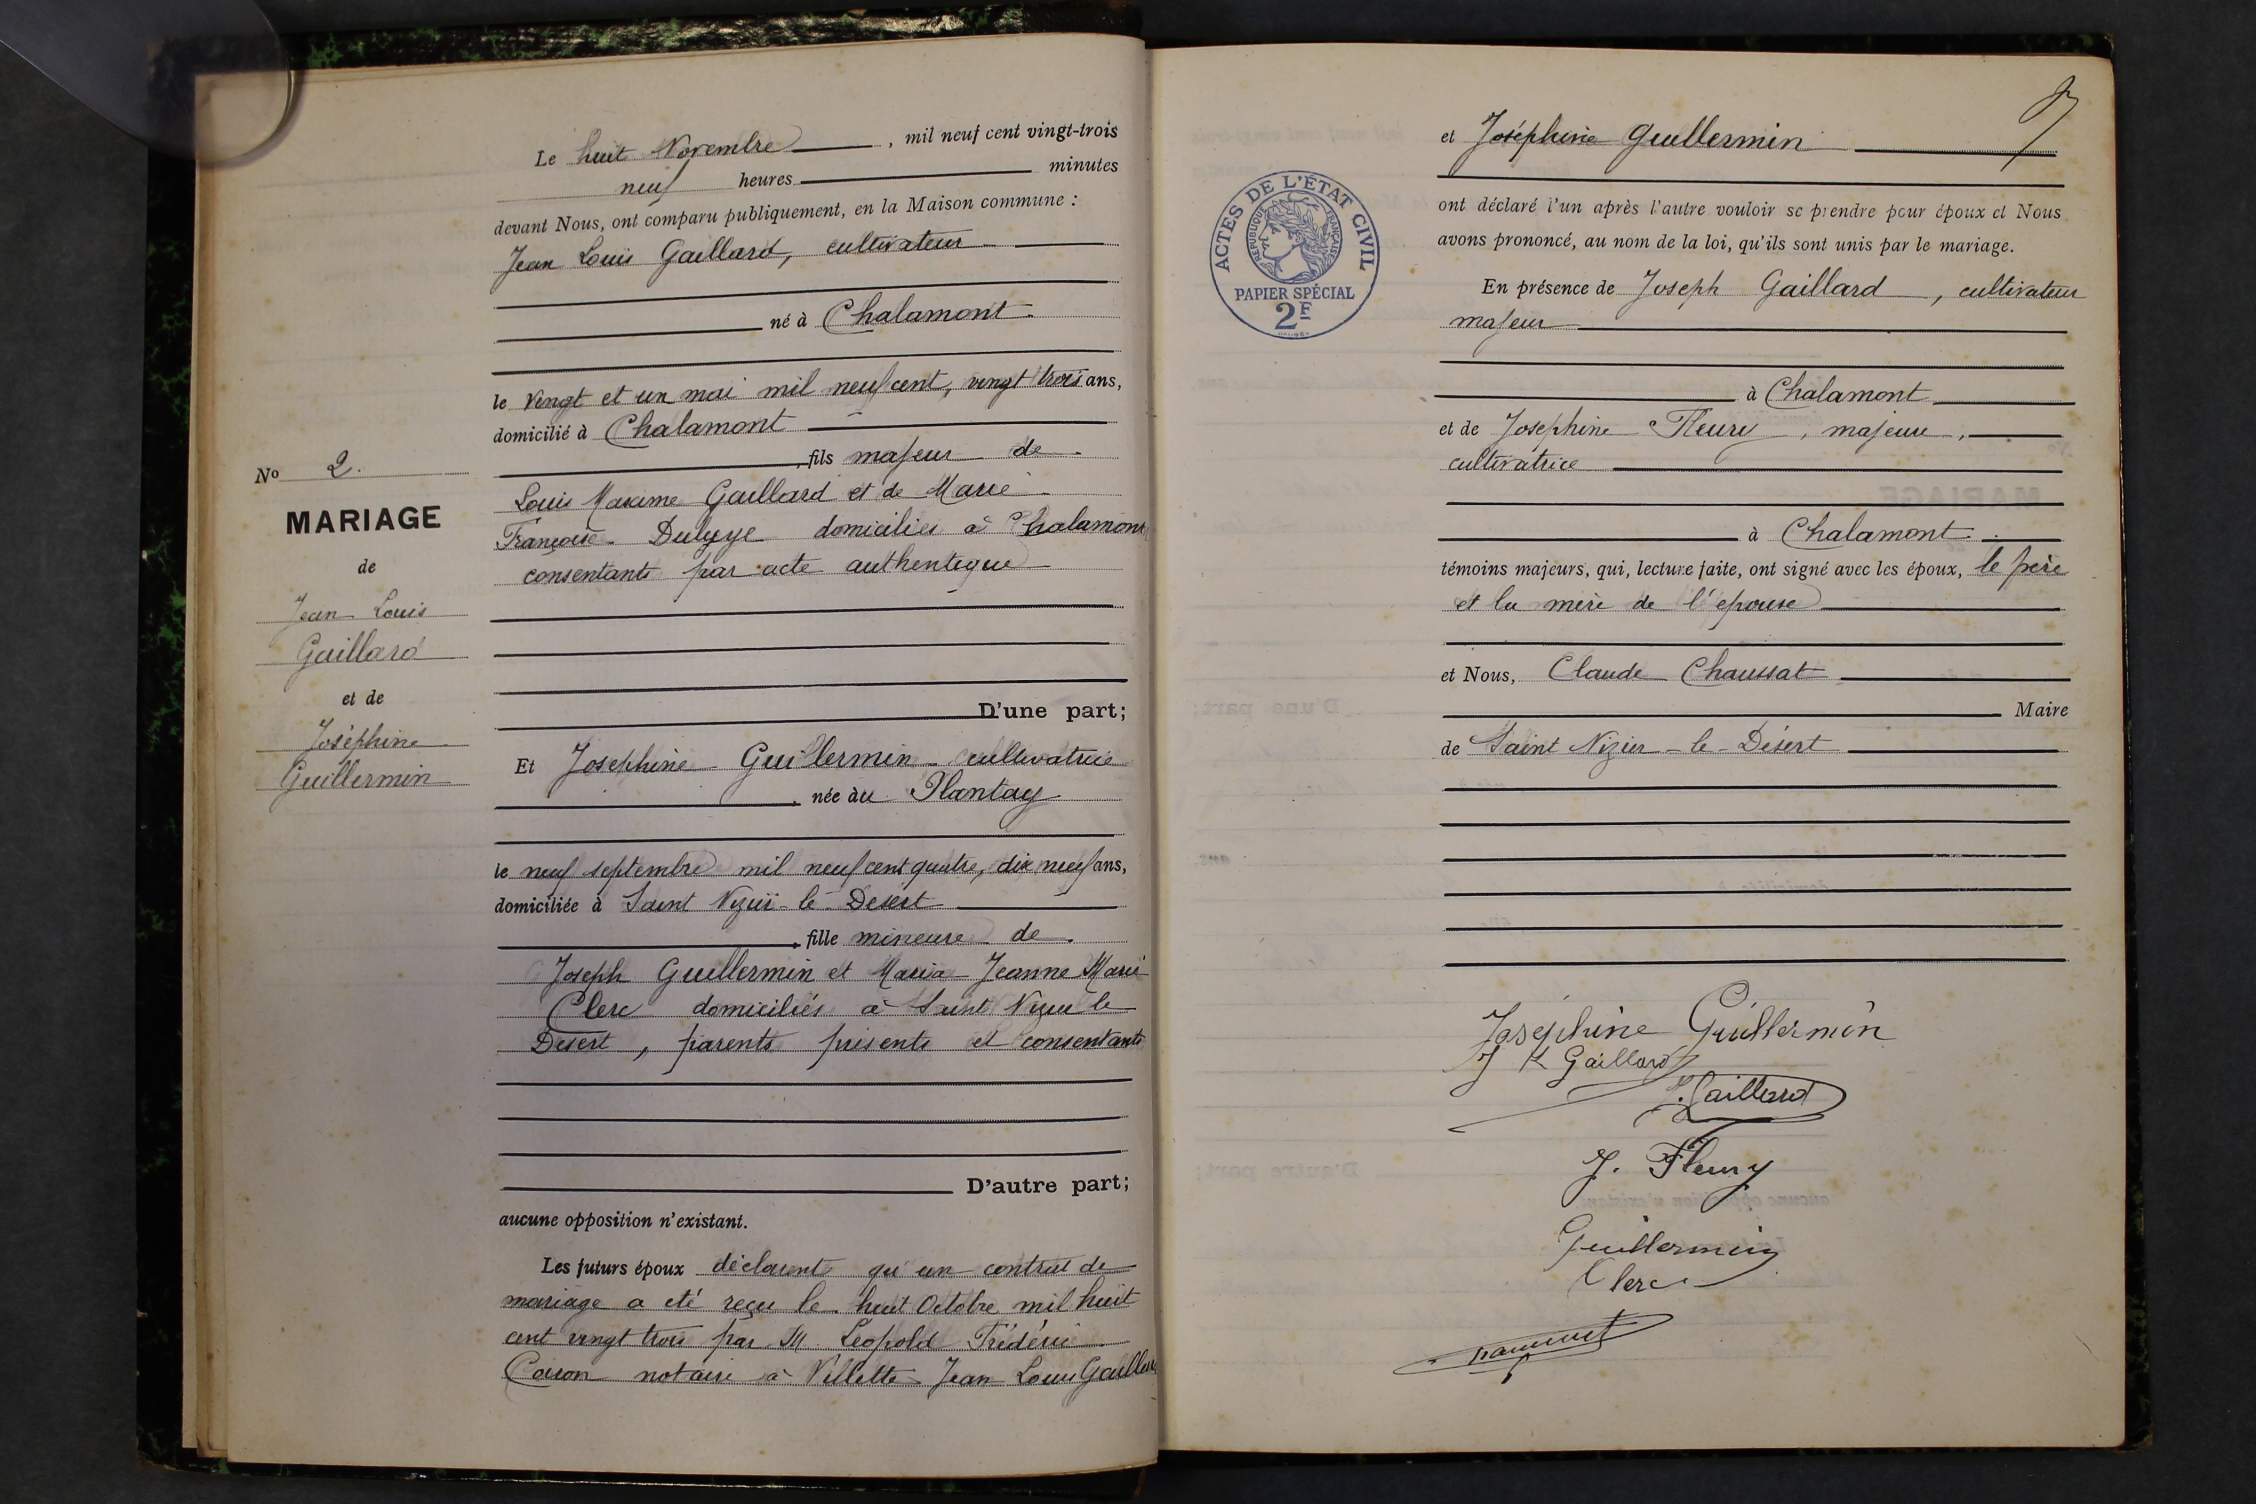 Le huit Novembre , mil neuf cent vingt-trois
neuf heures minutes
devant Nous, ont comparu publiquement, en la Maison commune :
Jean Louis Gaillard, cultivateur
né à Chalamont
le vingt et un mai mil neuf cent, vingt trois ans,
domicilié à Chalamont
, fils majeur de
Louis Maxime Gaillard et de Marie
Françoise domiciliés à Chalamont
consentants par acte authentique
No 2.
MARIAGE
de
Jean Louis
Gaillard
et de
Joséphine
Guillermin
D'une part;
Et Josephine Guillermin cultivatrice
, née àu Plantay
le neuf septembre mil neuf cent quatre, dix neuf ans,
domiciliée à Saint Nizier-le-Désert
, fille mineure de
Joseph Guillermin et Maria Jeanne Marie
Clerc domiciliés à Saint Nizier le
Désert, parents présents et consentants
D'autre part;
aucune opposition n'existant.
Les futurs époux déclarent qu'un contrat de
mariage a été reçu le huit Octobre mil huit
cent vingt trois par M Léopold Frédéric
notaire à Villette Jean Louis Gaillard
et Joséphine Guillermin
ont déclaré l'un après l'autre vouloir se prendre pour époux et Nous
avons prononcé, au nom de la loi, qu'ils sont unis par le mariage.
En présence de Joseph Gaillard , cultivateur
majeur
à Chalamont
et de Joséphine Fleury , majeure,
cultivatrice
à Chalamont
témoins majeurs, qui, lecture faite, ont signé avec les époux, le père
et la mère de l'épouse
et Nous, Claude Chaussat
Maire
de Saint Nizier-le-Désert
ACTES DE L'ÉTAT CIVIL
RÉPUBLIQUE FRANÇAISE
PAPIER SPÉCIAL
2F
Joséphine Guillermin
J L Gaillard
J. Gaillard
J. Fleury
Guillermin
Clerc